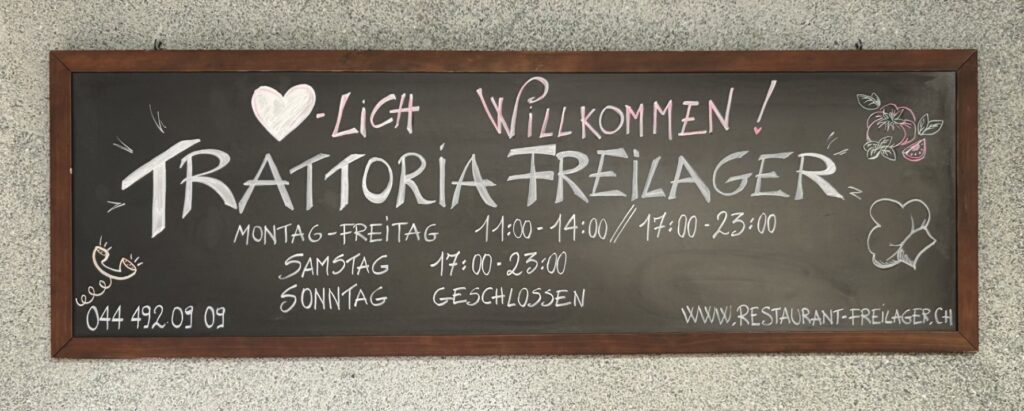 -LICH WILLKOMMEN!
TRATTORIA FREILAGER
MONTAG-FREITAG 11:00-14:00//17:00-23:00
SAMSTAG 17:00-23:00
SONNTAG GESCHLOSSEN
044 492 09 09
WWW.RESTAURANT-FREILAGER.CH